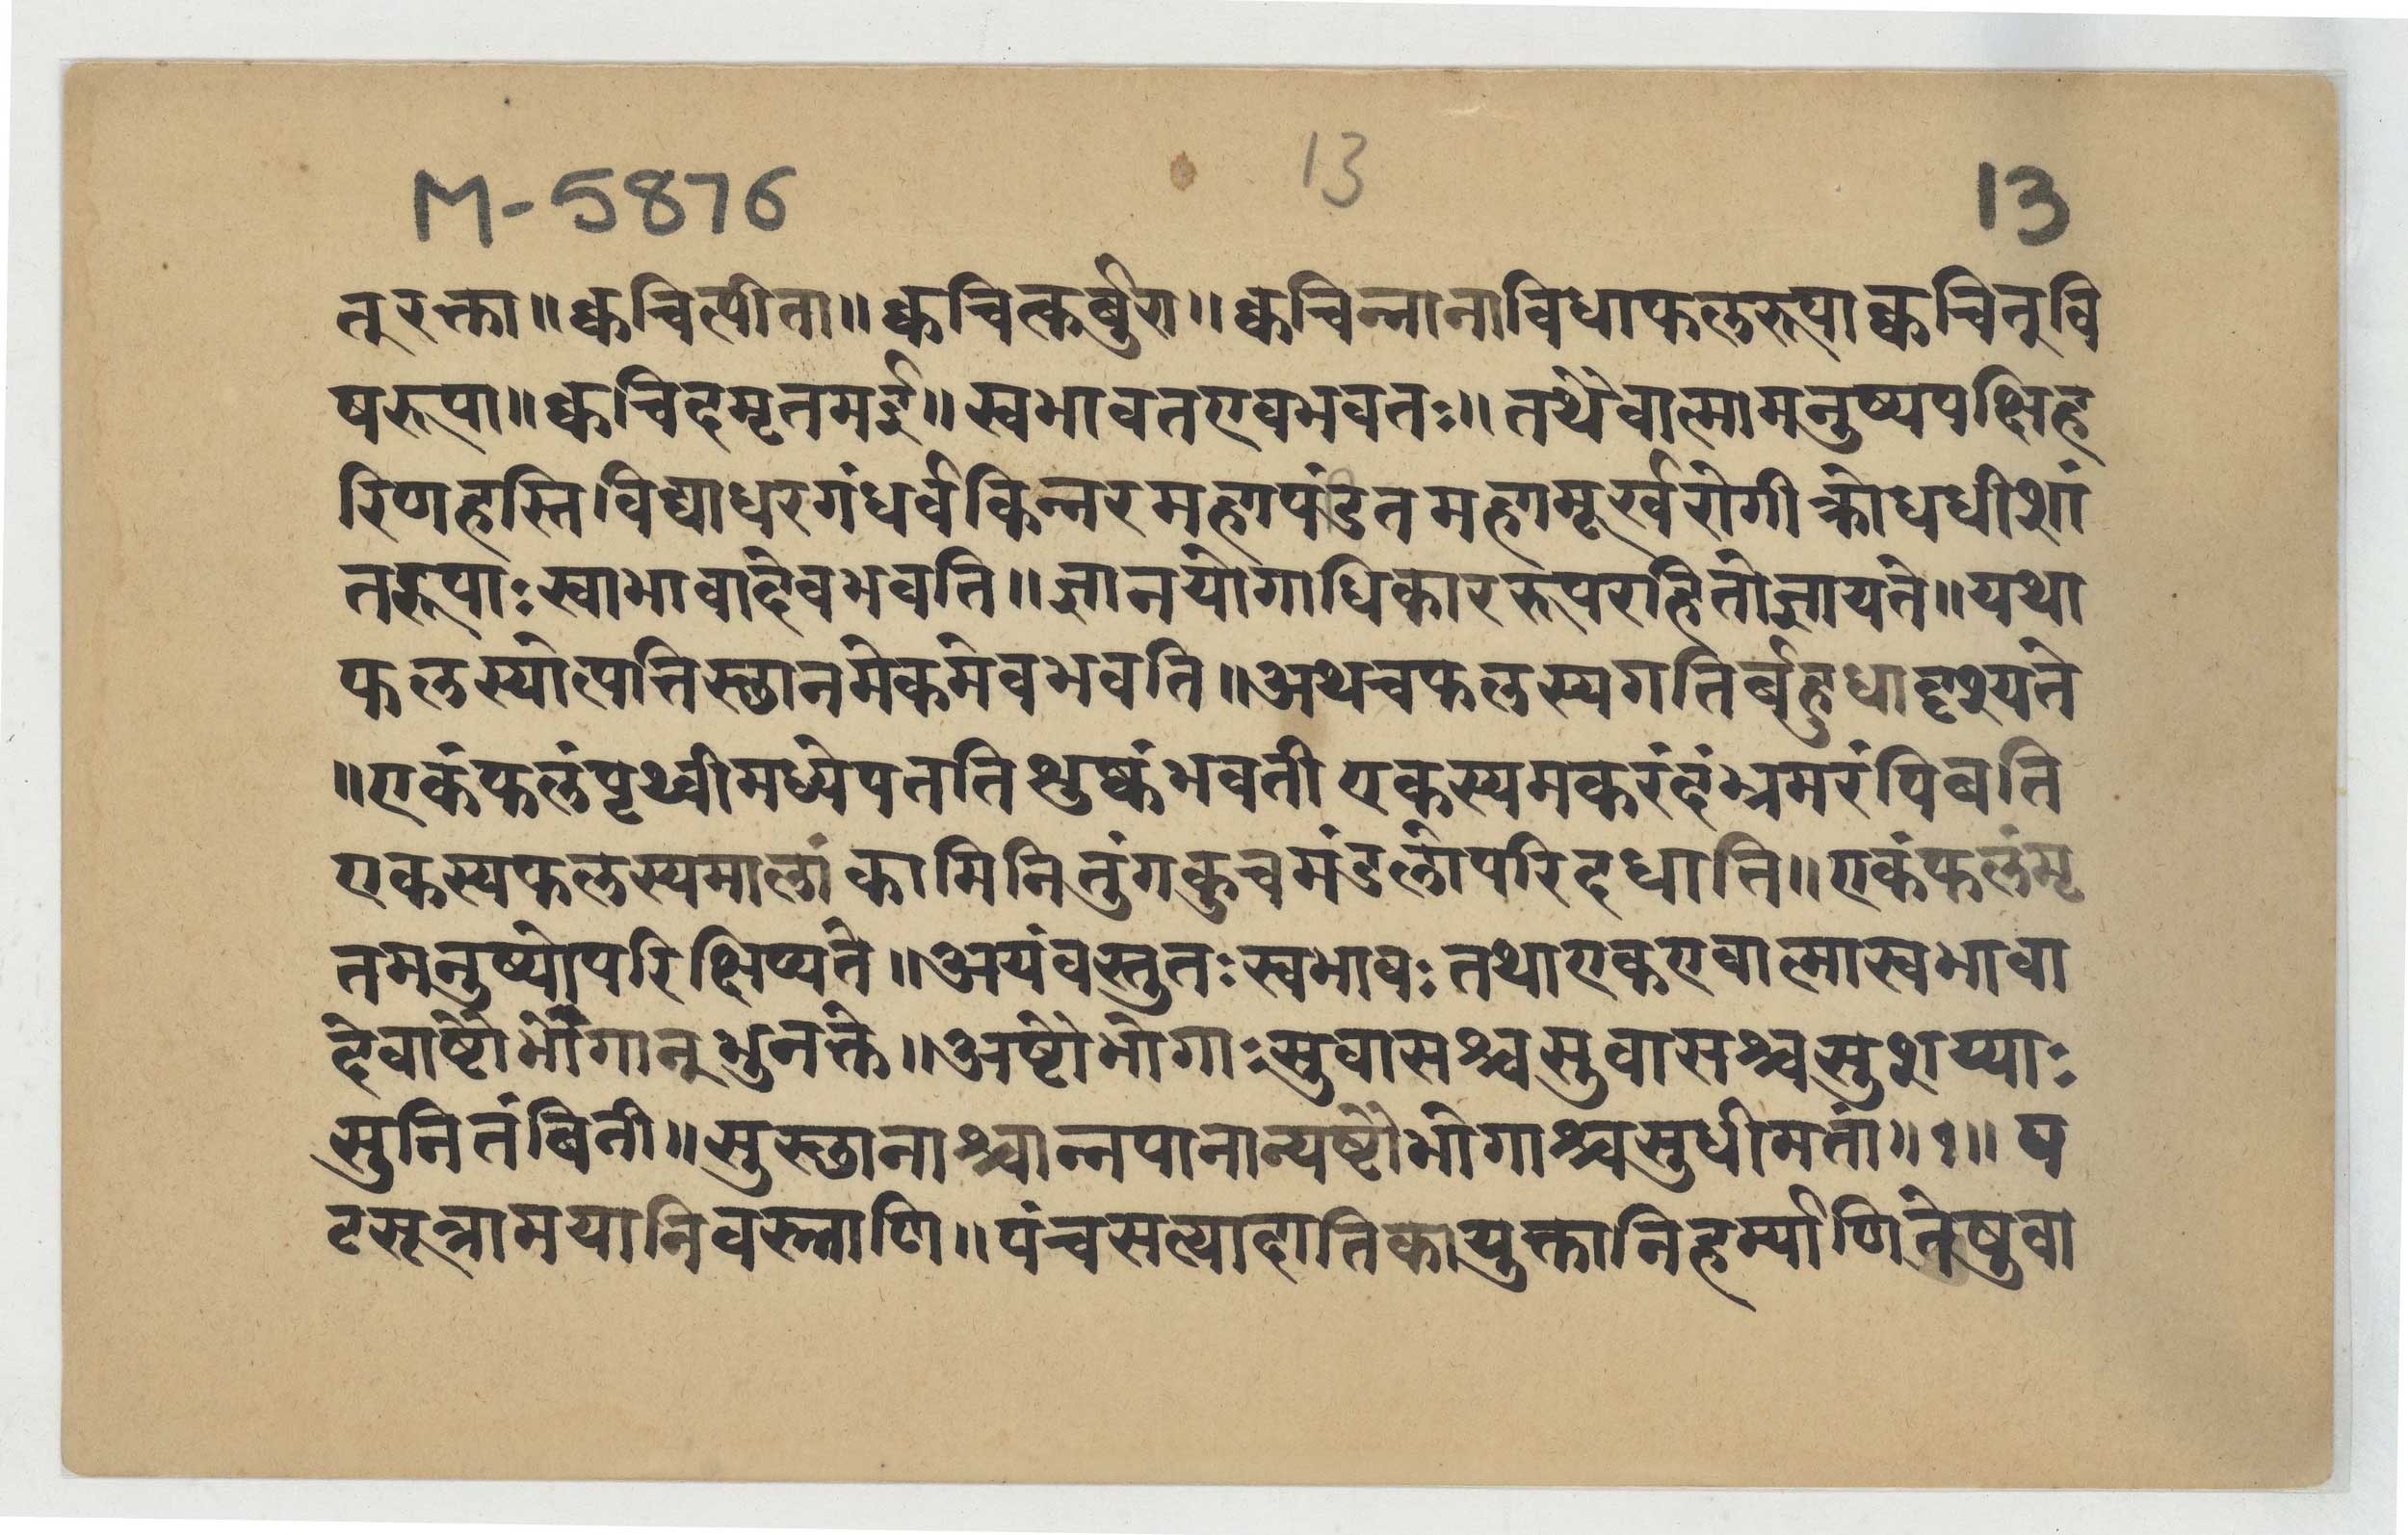 13
M-5876 13
त्‌ रक्ता॥क्वचित्पीता॥क्वचित्कर्बुरा॥क्वचिन्नानाविधाफलरूपाक्वचित्‌वि
षरूपा॥क्वचिदमृतमई॥स्वभावतएवभवतः॥तथैवात्मामनुष्यपक्षिह
रिणहस्तिविद्याधरगंधर्वकिन्नरमहापंडितमहामूर्खरोगीक्रोधधीशां
तरूपाःस्वाभावादेवभवति॥ज्ञानयोगाधिकाररूपरहितोज्ञायते॥यथा
फलस्योत्पत्तिस्छानमेकमेवभवति॥अथचफलस्यगतिर्बहुधादृश्यते
॥एकंफलंपृथ्वीमध्येपतति शुष्कंभवती एकस्यमकरंदंभ्रमरंपिबति
एकस्यफलस्यमालां कामिनितुंगकुचमंडलोपरिदधाति॥एकंफलंमृ
तमनुष्योपरिक्षिप्यते॥अयंवस्तुतःस्वभावःतथाएकएवात्मास्वभावा
देवाष्टौभोगान्‌भुनक्ते॥अष्टौभोगाःसुवासश्चसुवासश्चसुशय्याः
सुनितंबिनी॥सुस्छानाश्चान्नपानान्यष्टौभोगाश्चसुधीमतां॥१॥ प
टसूत्रामयानिवस्त्राणि॥पंचसत्पाहातिकायुक्तानिहर्म्याणितेषुवा